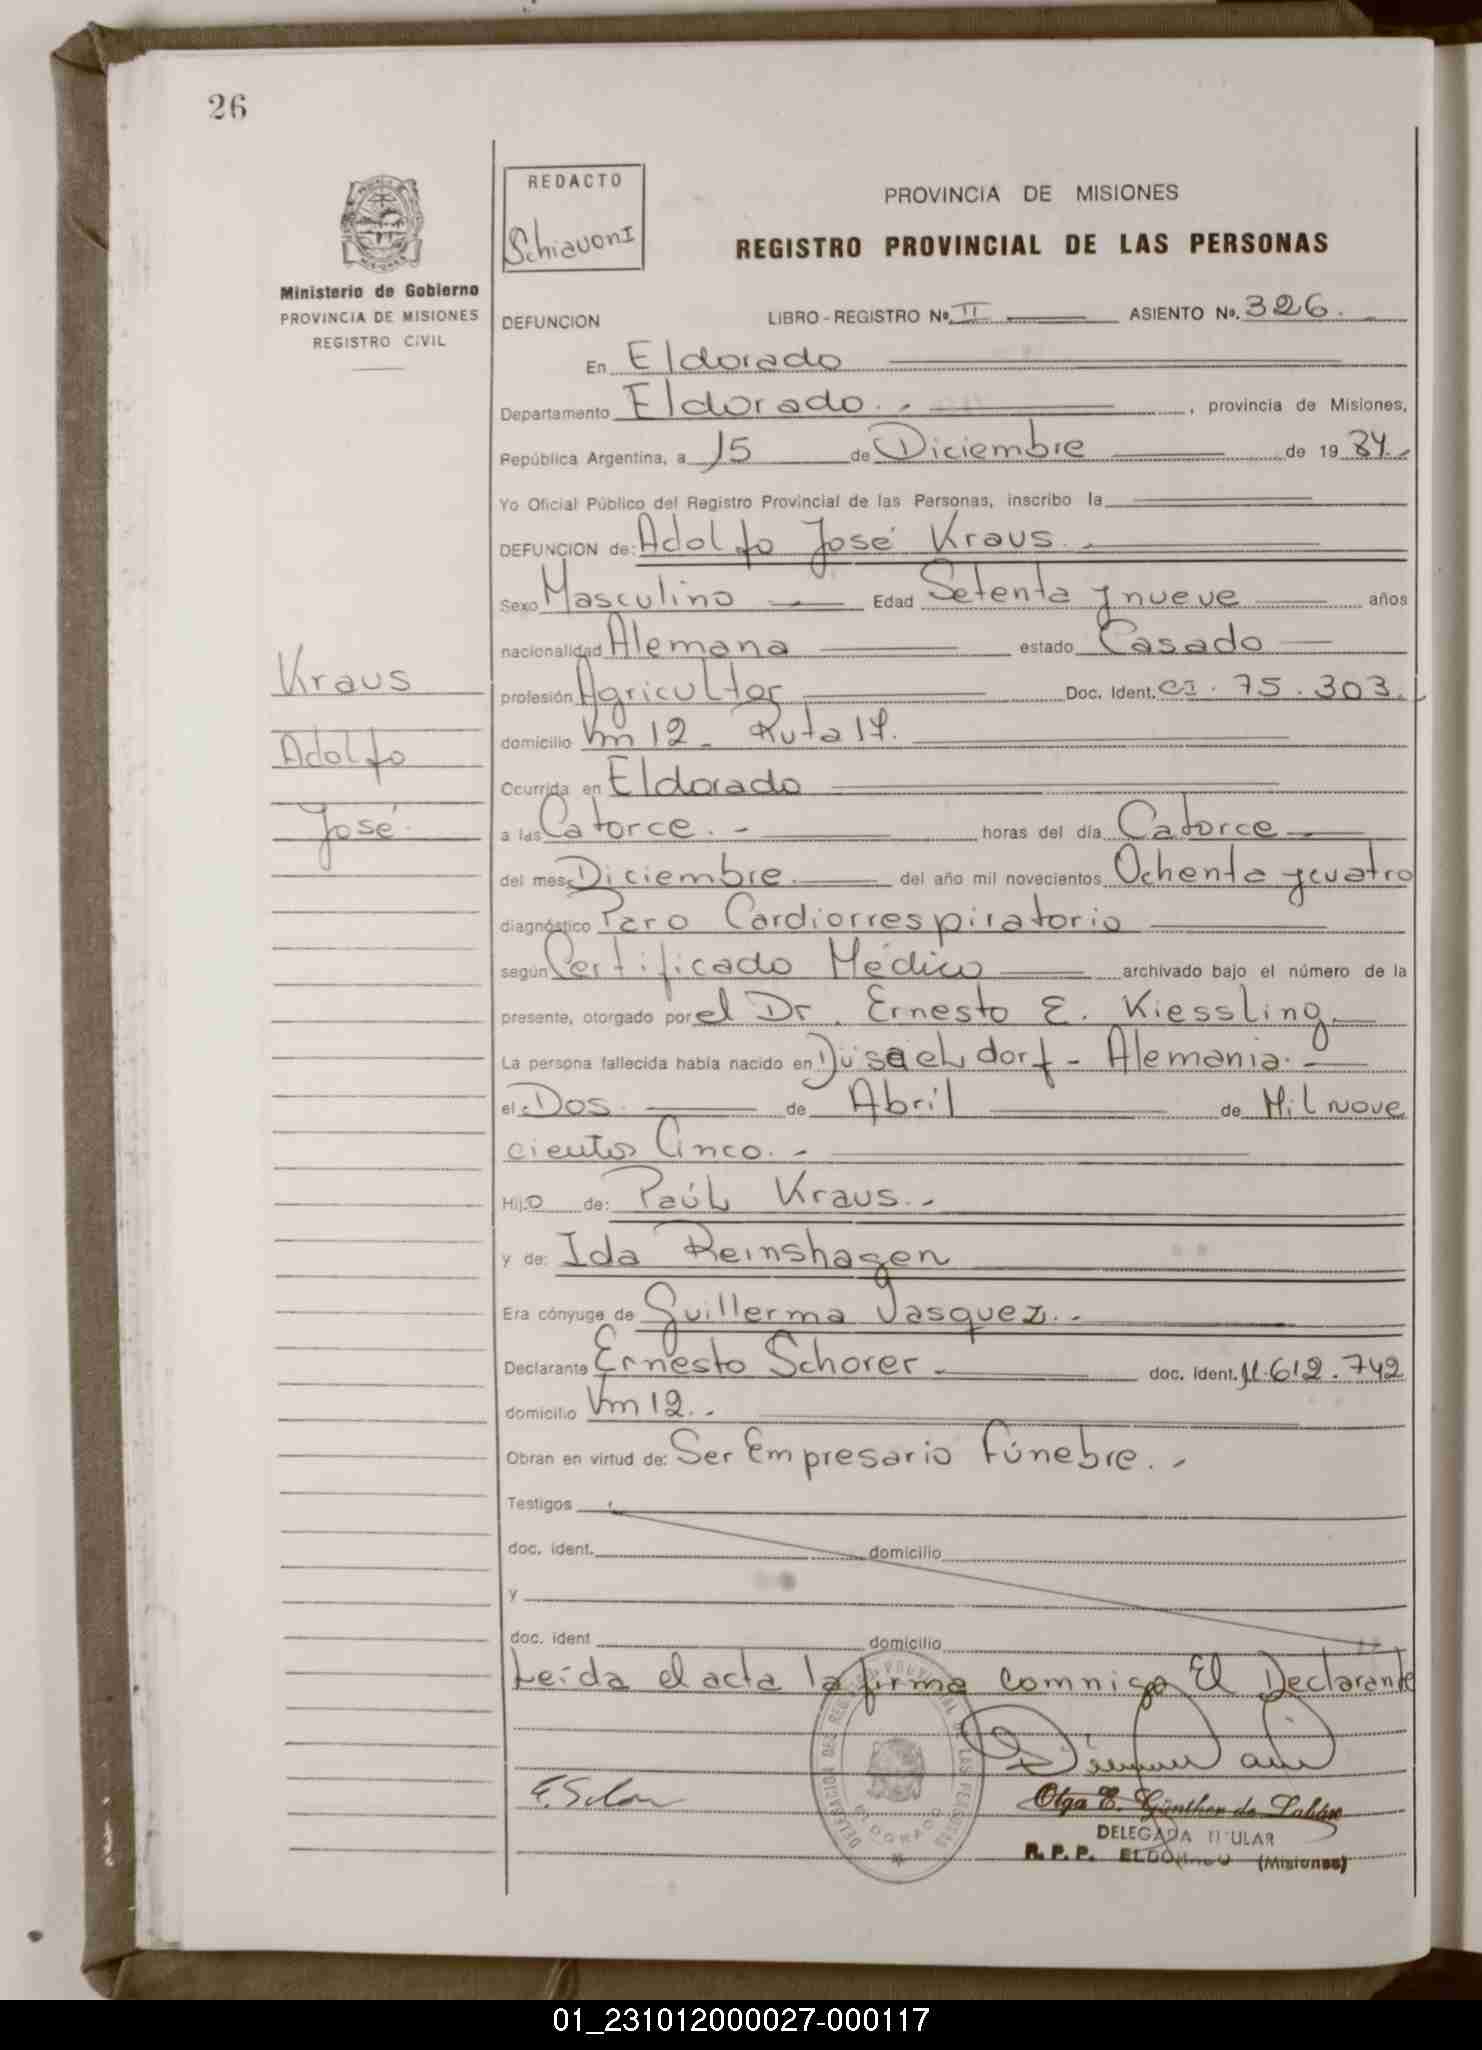 26
REDACTO
Schiavoni
PROVINCIA DE MISIONES
REGISTRO PROVINCIAL DE LAS PERSONAS
Ministerio de Gobierno
PROVINCIA DE MISIONES
REGISTRO CIVIL
DEFUNCION LIBRO-REGISTRO Nº. II ASIENTO Nº. 326.
En Eldorado
Departamento Eldorado. , provincia de Misiones,
República Argentina, a 15 de Diciembre de 19 84.
Yo Oficial Público del Registro Provincial de las Personas, inscribo la
DEFUNCION de: Adolfo José Kraus.
Sexo Masculino Edad Setenta y nueve años
nacionalidad Alemana estado Casado
Kraus
profesión Agricultor Doc. Ident. CI. 75.303.
Adolfo
domicilio Km 12 - Ruta 17.
Ocurrida en Eldorado
José.
a las Catorce. - horas del día Catorce
del mes Diciembre. del año mil novecientos Ochenta y cuatro
diagnóstico Paro Cardiorrespiratorio
según Certificado Médico archivado bajo el número de la
presente, otorgado por el Dr. Ernesto E. Kiessling.
La persona fallecida había nacido en Dusaeldorf - Alemania.
el Dos. de Abril de Mil nove
cientos Cinco. -
Hijo de: Paúl Kraus. -
y de: Ida Reinshagen
Era cónyuge de Guillerma Vasquez. -
Declarante Ernesto Schorer doc. ident. 11.612.742
domicilio Km 12. .
Obran en virtud de: Ser Empresario Fúnebre. -
Testigos
doc. ident. domicilio
y
doc. ident domicilio
Leída el acta la firma comnigo El Declarante
DELEGACION DEL REGISTRO PROVINCIAL DE LAS PERSONAS
ELDORADO
Olga E. Günther de
DELEGADA TITULAR
R.P.P. ELDORADO (Misiones)
01_231012000027-000117